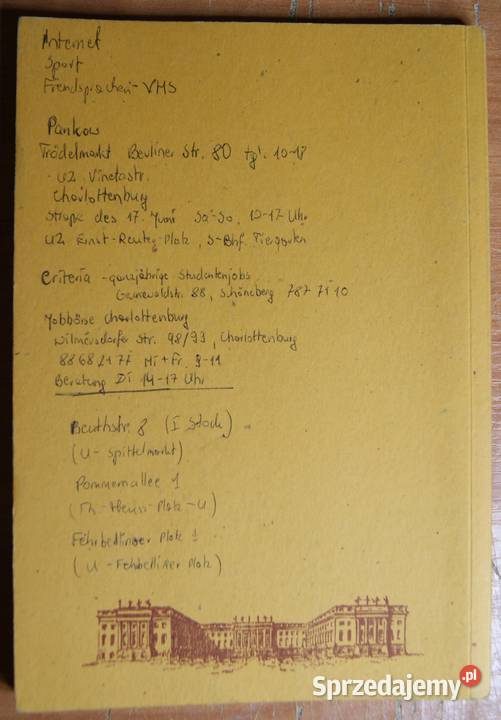 Internet
Sport
Fremdsprachen - VHS
Pankow
Trödelmarkt Berliner Str. 80 tgl. 10-17
- U2 Vinetastr.
Charlottenburg
Straße des 17. Juni Sa-So, 10-17 Uhr
U2 Ernst-Reuter-Platz, S-Bhf. Tiergarten
Criteria - ganzjährige Studentenjobs
Grunewaldstr. 88, Schöneberg 787 71 10
Jobbörse Charlottenburg
Wilmersdorfer Str. 98/99, Charlottenburg
88682177 Mi + Fr. 9-11
Beratung Di 14-17 Uhr
Beuthstr. 8 (I Stock)
(U - Spittelmarkt)
Pommernallee 1
(Th-Heuss-Platz - U)
Fehrbelliner Platz 1
(U - Fehrbelliner Platz)
Sprzedajemy.pl